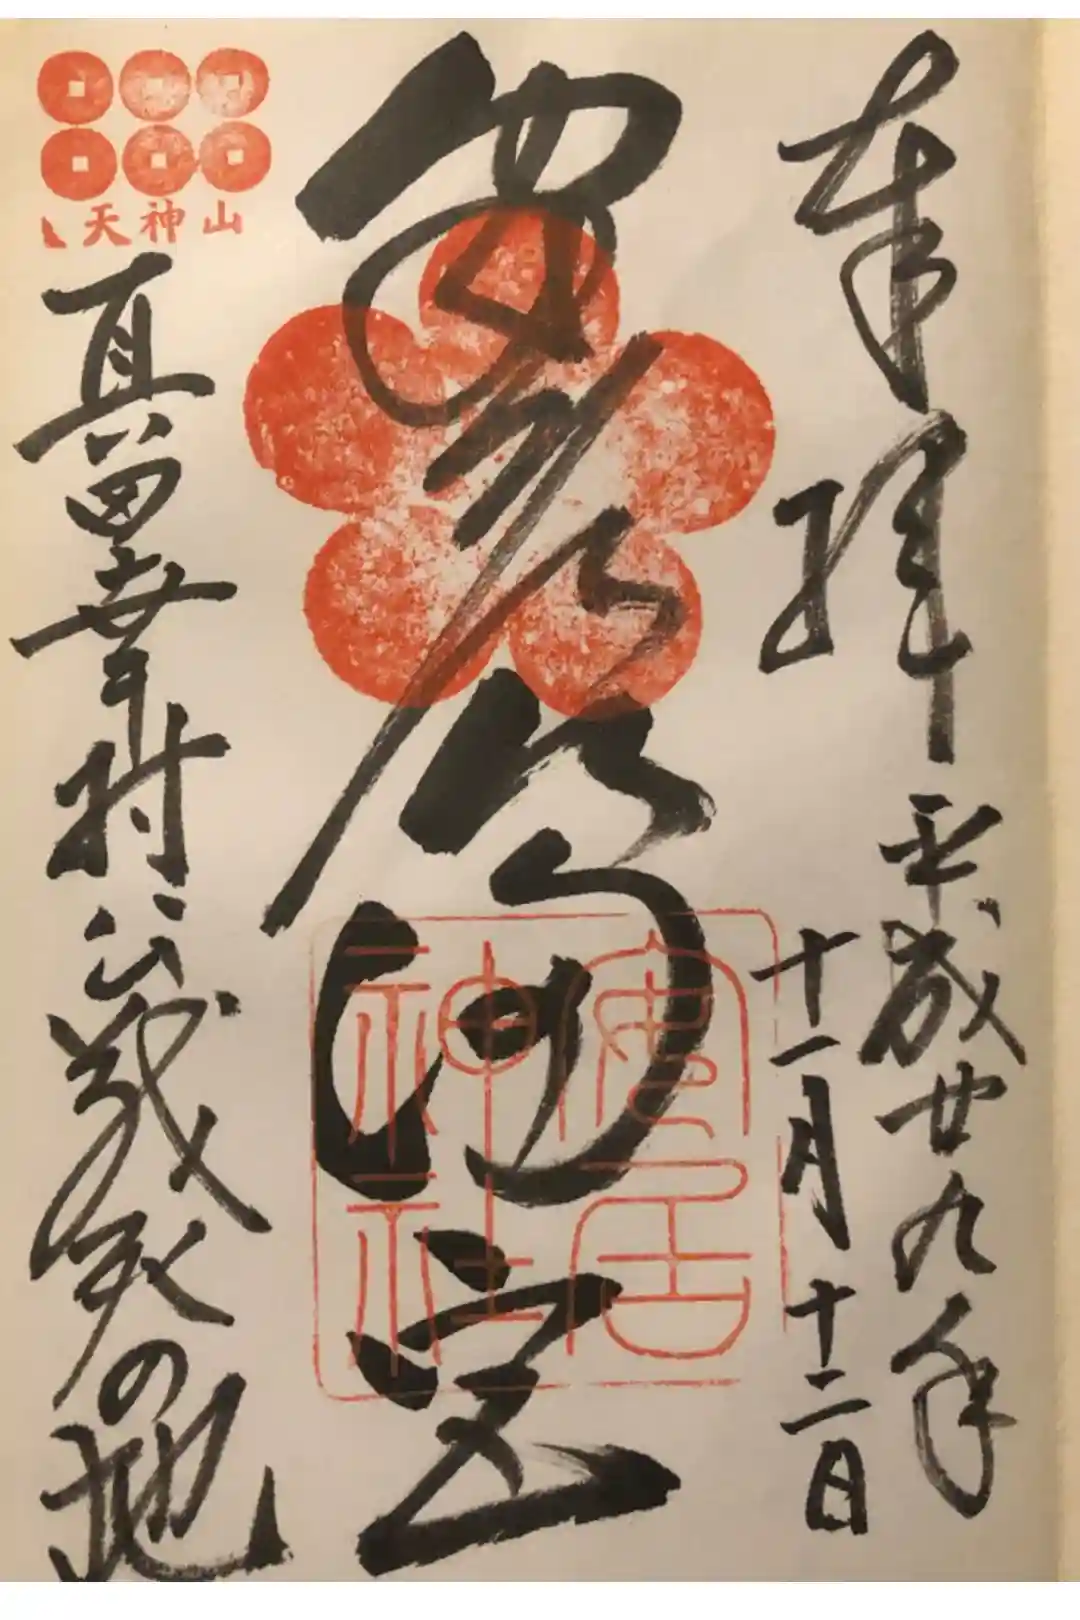 奉拝
平成廿九年
十一月十二日
安居
神社
天神山
真田幸村公戦死の地